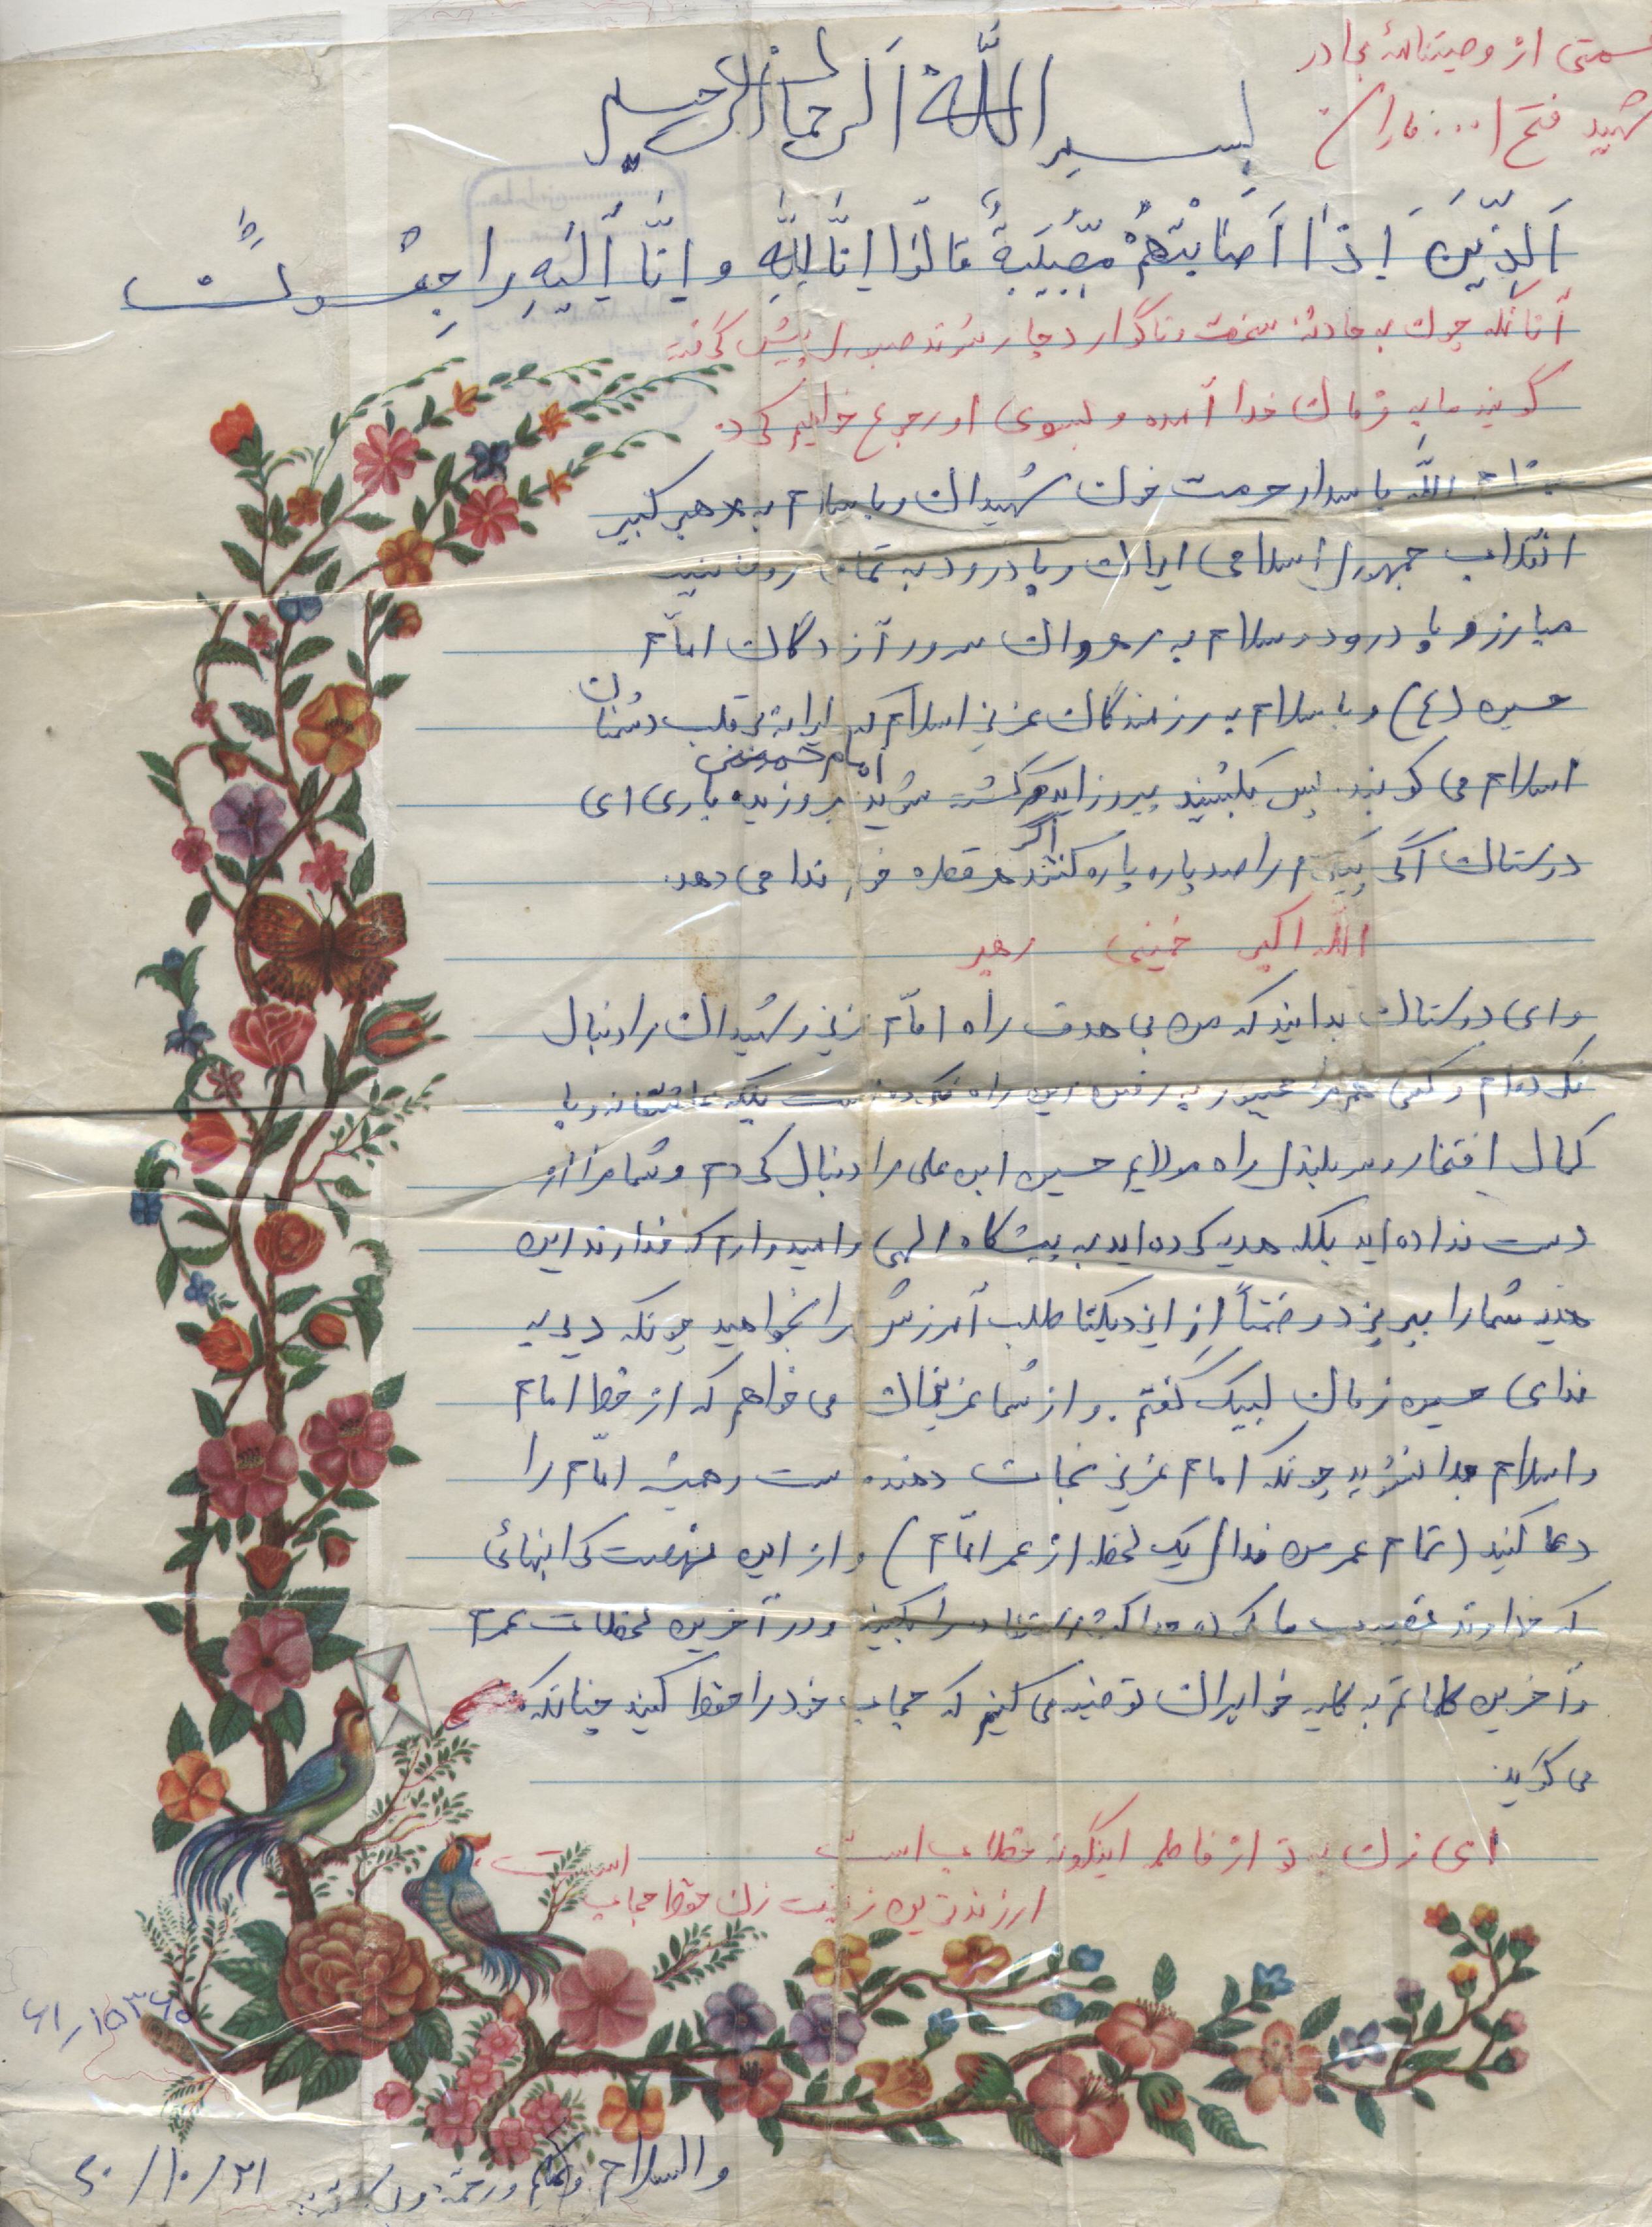 قسمتی از وصیتنامهٔ برادر
شهید فتح ا...
بسم الله الرحمان الرحیم
اَلَّذینَ اِذا اَصابَتْهُمْ مُصیبَةٌ قالوُا اِنّا لِلّهِ و اِنّا اِلَیْهِ راجِعُونَ
آنانکه چون به حادثهٔ سخت و ناگوار دچار شوند صبوری پیش گرفته
گویند ما به فرمان خدا آمده و بسوی او رجوع خواهیم کرد.
الله پاسدار حرمت خون شهیدان و با سلام به رهبر کبیر
انقلاب جمهوری اسلامی ایران و با درود به تمامی روحانیت
مبارز و با درود و سلام به رهروان سرور آزادگان امام
حسین (ع) و با سلام به رزمندگان عزیز اسلام که قلب دشمنان
اسلام می کوبند. پس بکشید پیروزاید کشته شوید پیروزید باری ای
امام خمینی
دوستان اگر پیکرم را صد پاره پاره کنند اگر هر قطره خونم ندا می دهد.
الله اکبر خمینی رهبر
و ای دوستان بدانید که من بی هدف راه امام عزیز و شهیدان را دنبال
نکرده‌ام و کسی هم مرا مجبور به رفتن این راه نکرده است بلکه عاشقانه و با
کمال افتخار و سربلندی راه مولایم حسین ابن علی را دنبال کردم و شما مرا از
دست نداده‌اید بلکه هدیه کرده‌اید به پیشگاه الهی و امیدوارم که خداوند این
هدیه شما را بپذیرد ضمناً از ایزد یکتا طلب آمرزش را بخواهید چونکه دیر به
ندای حسین زمان لبیک گفتم. و از شما عزیزان می خواهم که از خط امام
و اسلام جدا نشوید چونکه امام عزیز نجات دهنده ست و همیشه امام را
دعا کنید (تمام عمر من فدای یک لحظه از عمر امام) و از این نهضت گرانبهائی
که خداوند نصیب ما کرده حداکثر استفاده را بکنید و در آخرین لحظات عمرم
و آخرین کلماتم به کلیه خواهران توصیه می کنم که حجاب خود را حفظ کنید چنانکه
می گوید:
ای زن به تو از فاطمه اینگونه خطاب است
ارزنده‌ترین زینت زن حفظ حجاب است
والسلام و علیکم و رحمة و برکاته:
۶۰/۱۰/۲۱